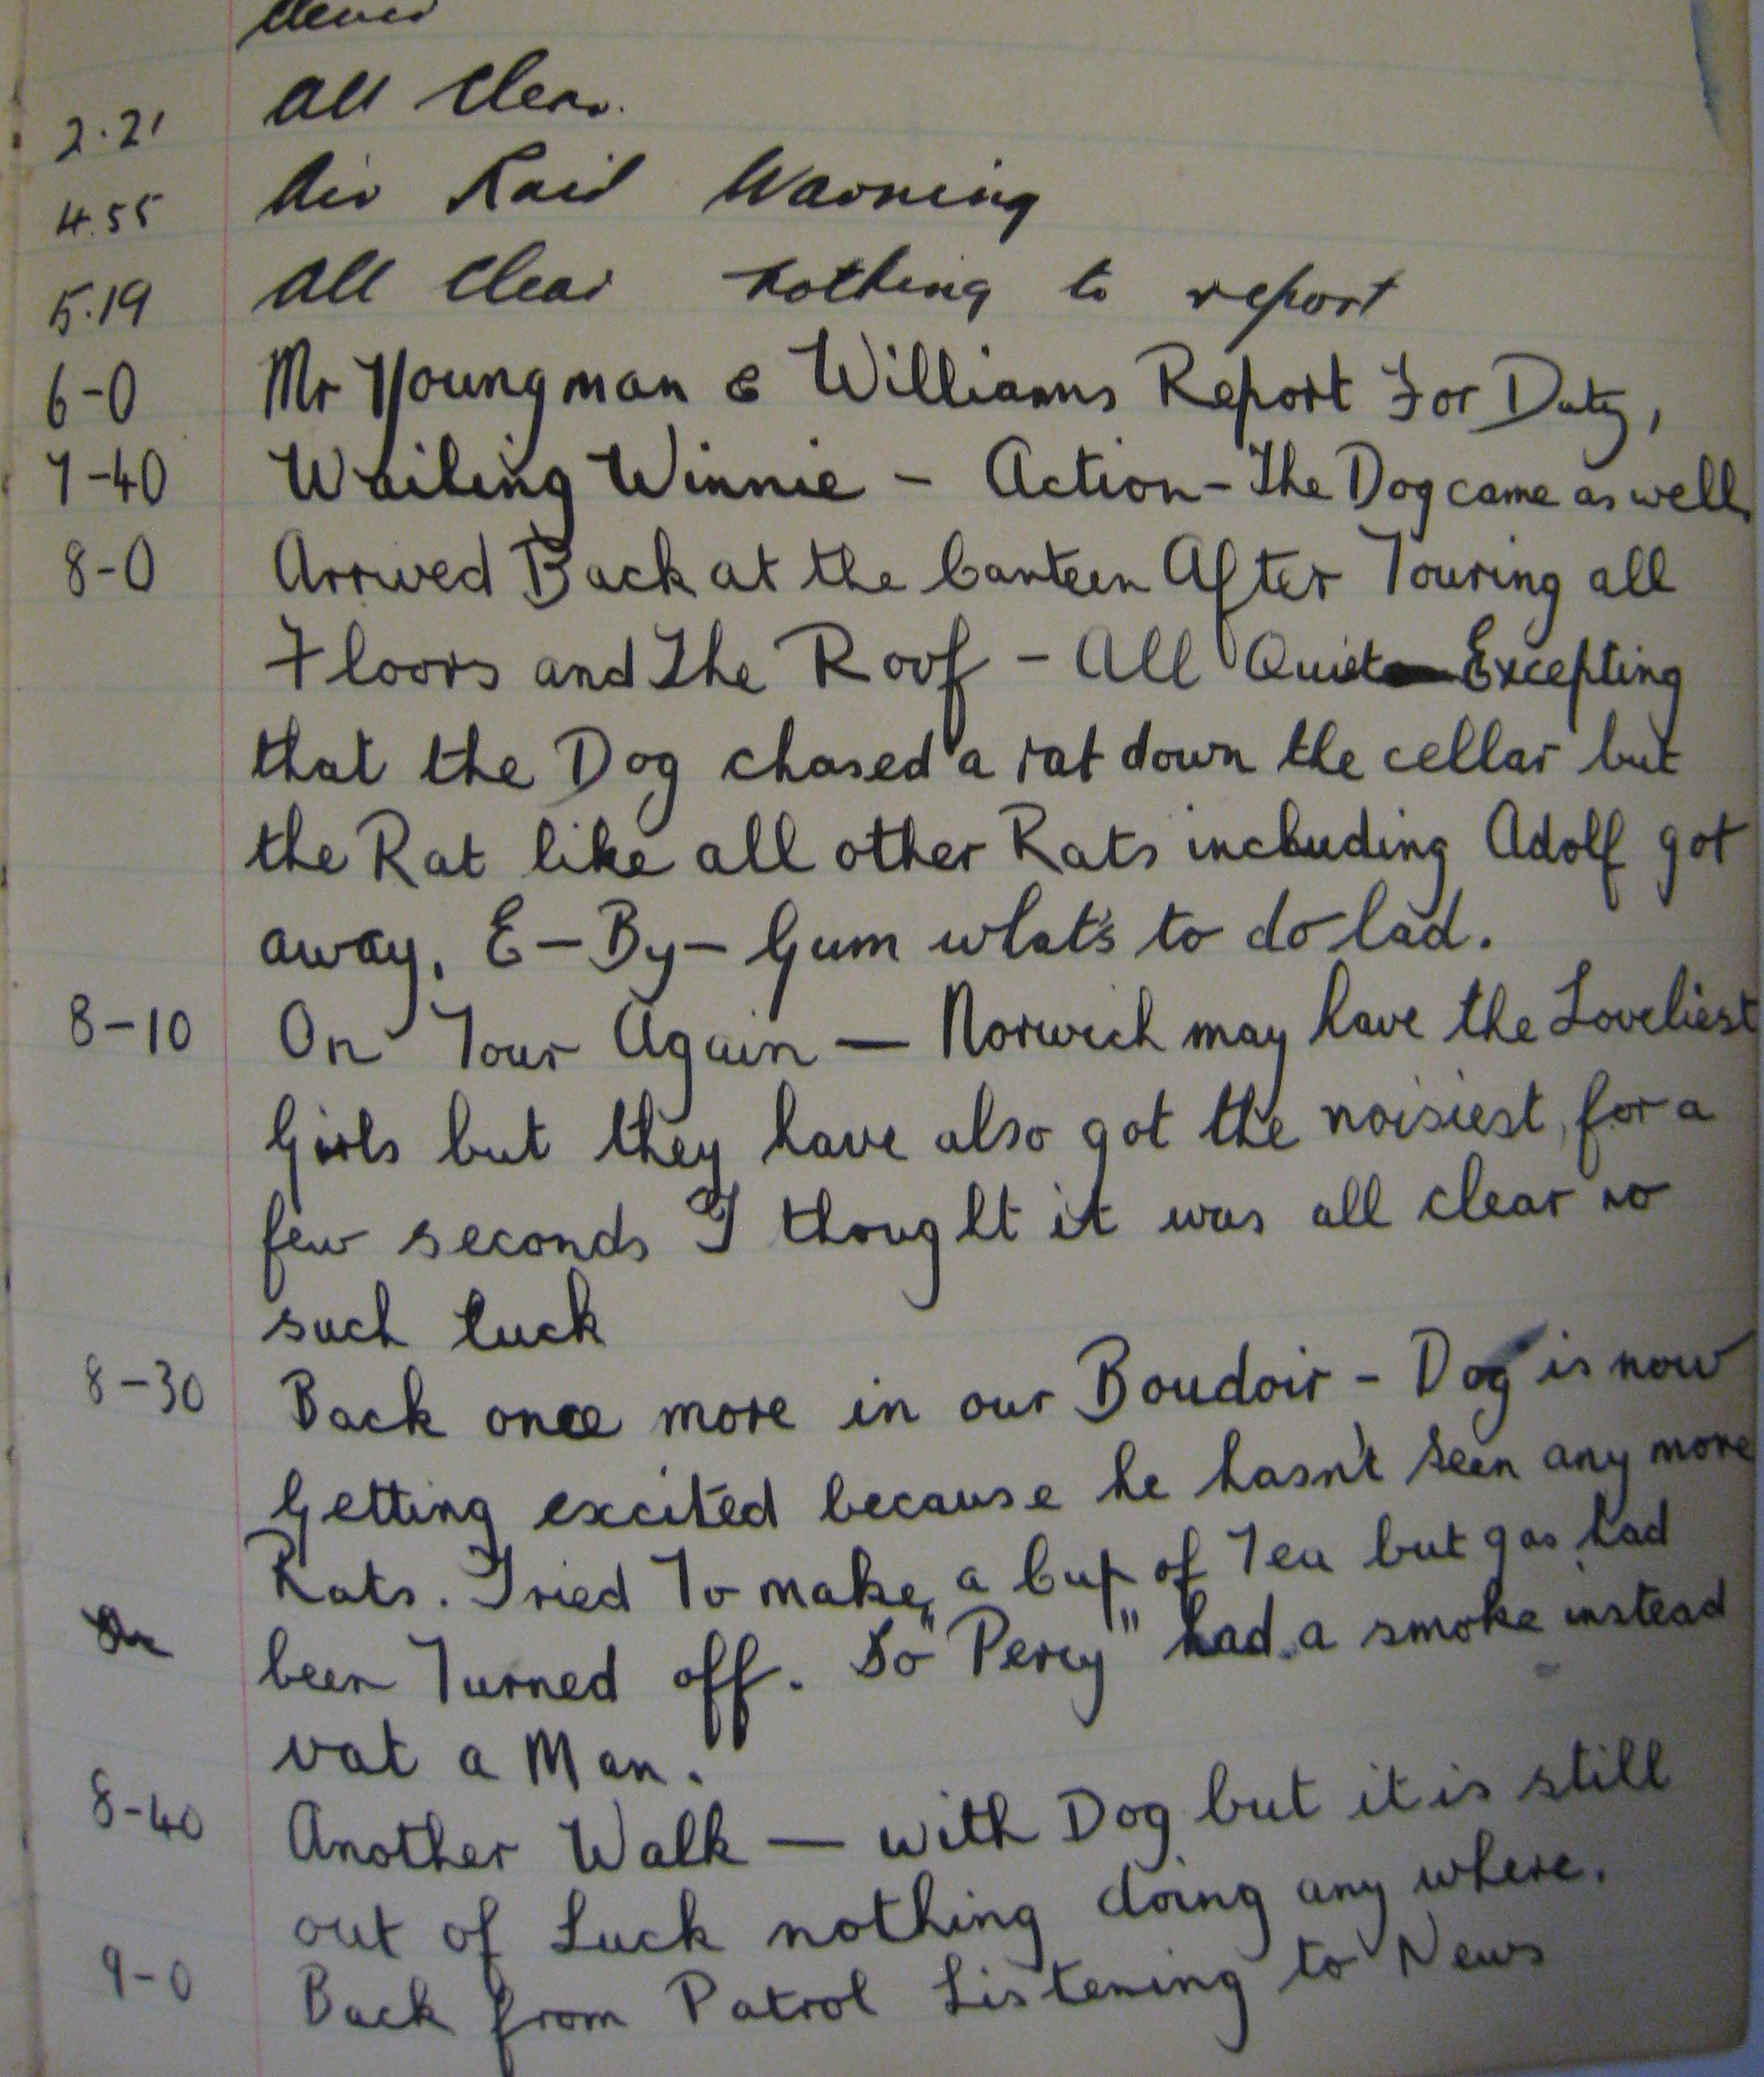 2.21 All Clear.
4.55 Air Raid Warning
5.19 All Clear nothing to report
6-0 Mr Youngman & Williams Report For Duty,
7-40 Wailing Winnie - Action - The Dog came as well
8-0 Arrived Back at the Canteen After Touring all
Floors and The Roof - All Quiet Excepting
that the Dog chased a rat down the cellar but
the Rat like all other Rats including Adolf got
away. E-By-Gum what's to do lad.
8-10 On Tour Again — Norwich may have the Loveliest
Girls but they have also got the noisiest, for a
few seconds I thought it was all clear no
such luck
8-30 Back once more in our Boudoir - Dog is now
Getting excited because he hasn't seen any more
Rats. Tried To make a Cup of Tea but gas had
been Turned off. So "Percy" had a smoke instead
vat a Man.
8-40 Another Walk — with Dog but it is still
out of Luck nothing doing any where.
9-0 Back from Patrol Listening to News